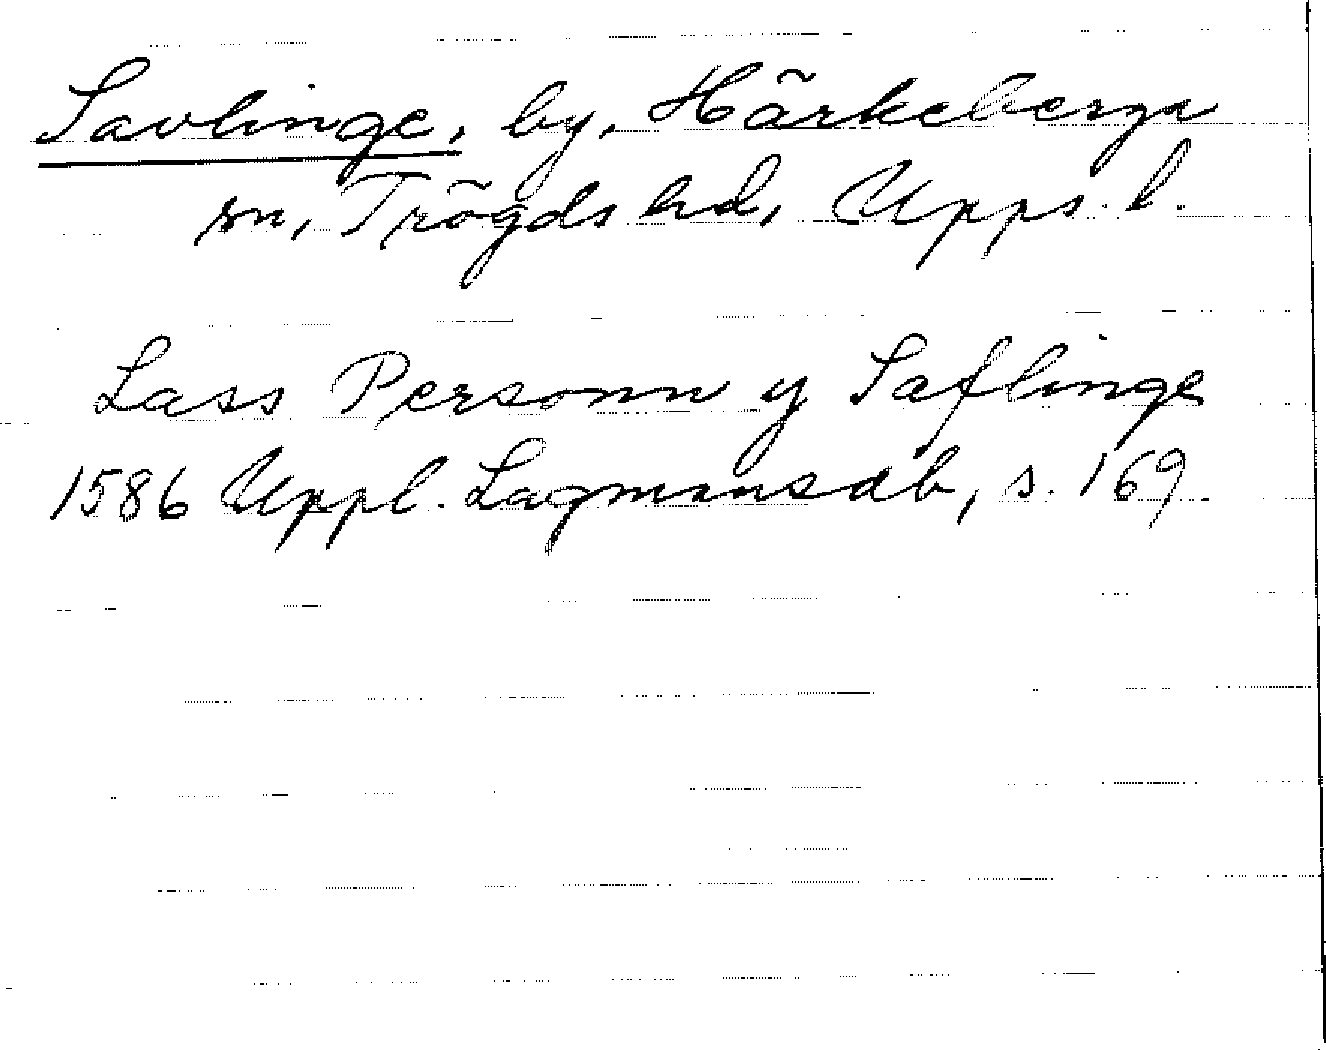 Savlinge, by, Härkeberga
sn, Trögds hd, Upps. l.
Lass Personn y Saflinge
1586 Uppl. Lagmansdb, s. 169